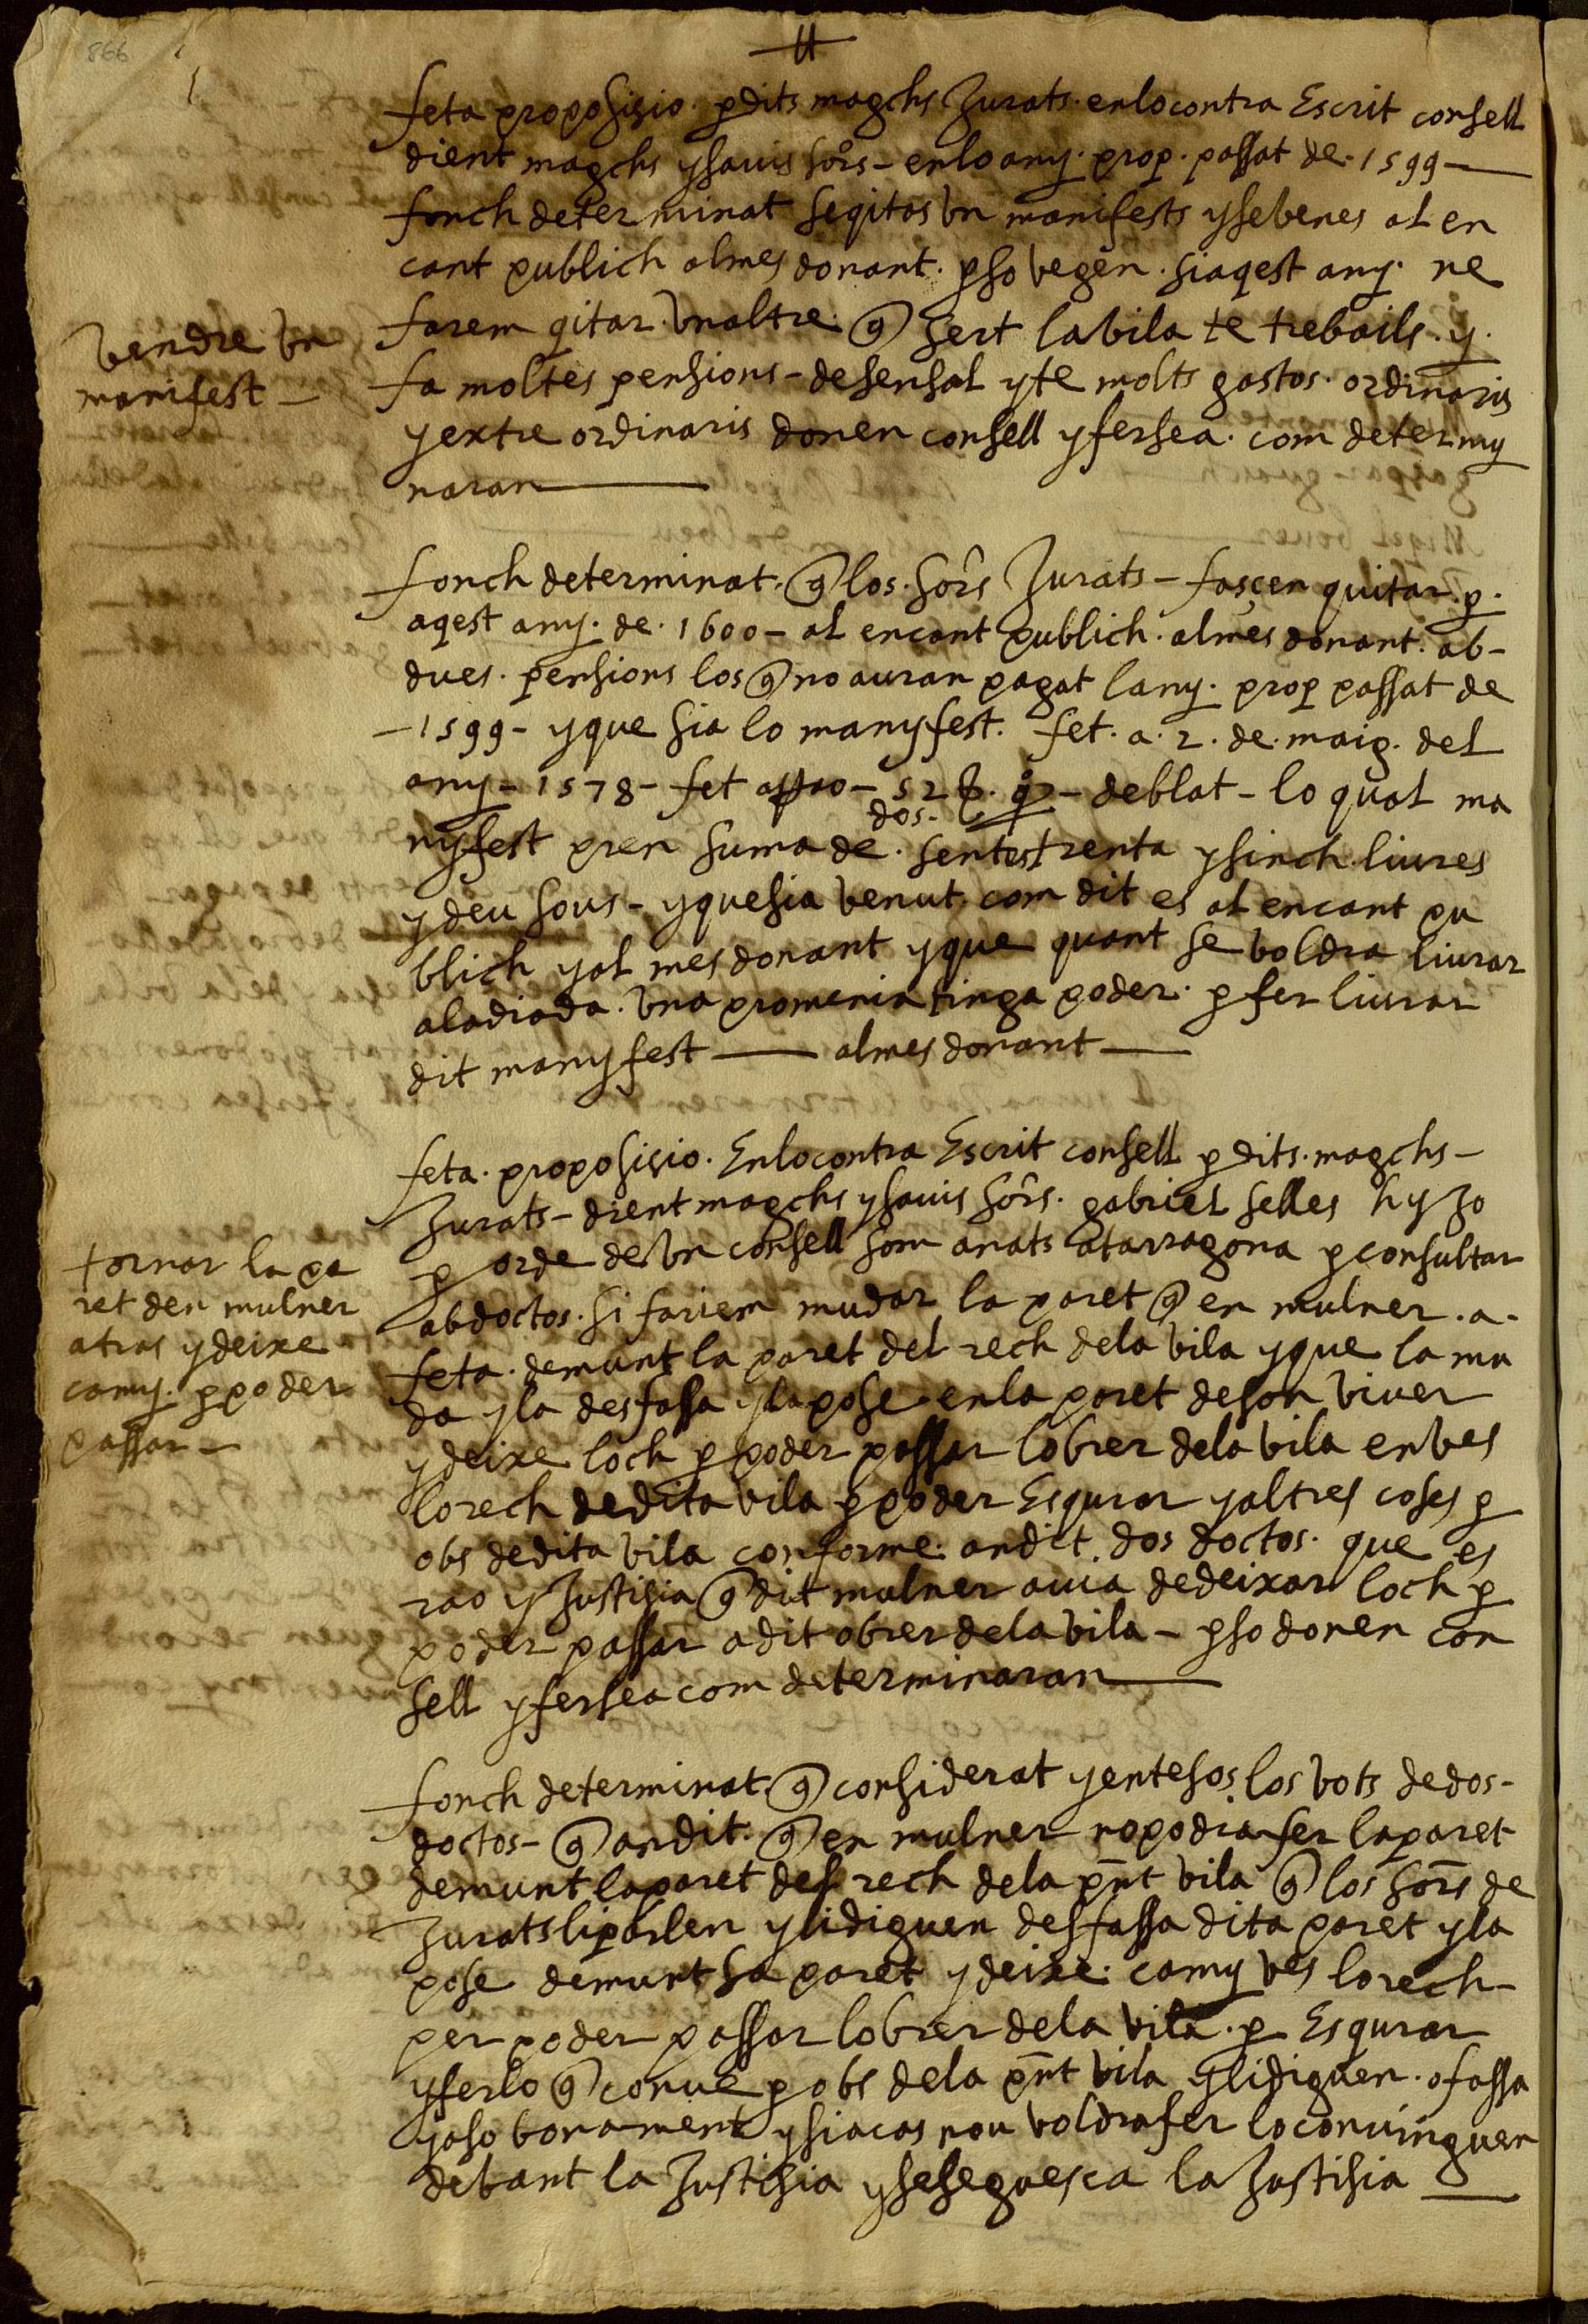 866
feta proposisio. p dits magchs Jurats. en lo contra Escrit consell
dient magchs y savis sors - en lo any. prop. passat de. 1599 -
fonch determinat seqitas un manifests y se venes al en
cant publich al mes donant. p so vegen. si aqest any. ne
farem qitar. un altre. q sert la vila te trebails. y.
vendre un
manifest -
fa moltes pensions - de sensal y te molts gastos. ordinaris
y extre ordinaris donen consell y fer sea. com determy
naran
fonch determinat. q los. sors Jurats - fasçen quitar. p.
aqest any. de. 1600 - al encant publich. al mes donant. ab -
dues. pensions los q no auran pagat lany. prop passat de
- 1599 - y que sia lo manyfest. fet. a. 2. de. maig. del
any - 1578 - fet a - 52 - de blat - lo qual ma
nyfest pren suma de. dos - sentes trenta y sinch liures
y deu sous - y que sia venut com dit es al encant pu
blich y al mes donant y que quant se voldra liurar
a la diada. una promenia tinga poder. p fer liurar
dit manyfest - al mes donant -
feta. proposisio. En lo contra Escrit consell p dits. magchs -
Jurats - dient magchs y savis sors. gabriel selles h y Jo
p orde de un consell som anats a tarragona p consultar
tornar la pa
ret den mulner
atras y deixe
camy. p poder
passar -
ab doctos. si fariem mudar la paret q en mulner. a.
feta. demunt la paret del rech de la vila y que la mu
da y la desfassa y la pose en la paret de son viver
y deixe loch p poder passar lobrer de la vila en ves
lo rech de dita vila p poder Esqurar y altres coses p
obs de dita vila conforme. an dit. dos doctos. que es
rao y Justisia q dit mulner avia de deixar loch p
poder passar a dit obrer de la vila - p so donen con
sell y fer sea com determinaran
fonch determinat. q considerat y entesos los vots de dos -
doctos - q an dit. q en mulner no podia fer la paret
demunt la paret del rech de la pnt vila q los sors de
Jurats li parlen y li diguen desfassa dita paret y la
pose demunt sa paret y deixe. camy ves lo rech -
per poder passar lobrer de la vila. p Esqurar
y fer lo q conve p obs de la pnt vila y li diguen. o fassa
y aso bonament y si acas nou voldra fer lo convinguen
devant la Justisia y se seguesca la Justisia